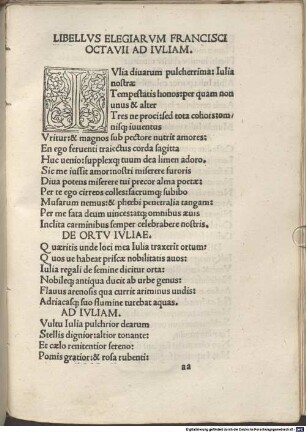 LIBELLVS ELEGIARVM FRANCISCI
OCTAVII AD IVLIAM.
IVlia diuarum pulcherrima: Iulia
nostræ
Tempestatis honos: per quam non
unus & alter
Tres ne proci: sed tota cohors: om/
nisq; iuuentus
Vritur: & magnos sub pectore nutrit amores:
En ego feruenti traiectus corda sagitta
Huc uenio: supplexq; tuum dea limen adoro.
Sic me iussit amor: nostri miserere furoris
Diua potens miserere tui precor alma poetæ:
Per te ego cirreos colles: sacrumq; subibo
Musarum nemus: & phœbi penetralia tangam:
Per me fata deum uinces: atq; omnibus æuis
Inclita carminibus semper celebrabere nostris.
DE ORTV IVLIAE.
Quæritis unde loci mea Iulia traxerit ortum?
Quos ue habeat priscæ nobilitatis auos:
Iulia regali de semine dicitur orta:
Nobileq; antiqua ducit ab urbe genus:
Flauus arenosis qua currit ariminus undis:
Adriacasq; suo flumine turebat aquas.
AD IVLIAM.
Vultu Iulia pulchrior dearum
Stellis dignior: altior tonante:
Et cælo renitentior sereno:
Pomis gratior: & rosa rubenti:
aa